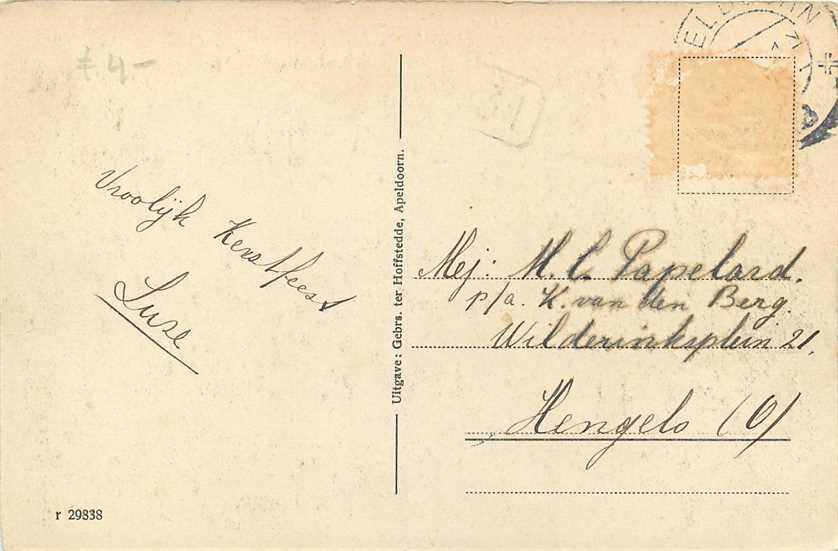 ELDOORN
f 4-
Vroolijk Kerstfeest
Luse
Uitgave: Gebrs. ter Hoffstedde, Apeldoorn.
Mej: M. C. Papelard.
p/a. K. van den Berg.
Wilderinksplein 21,
Hengelo (O)
r 29838